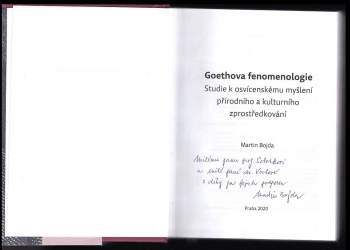 Goethova fenomenologie
Studie k osvícenskému myšlení
přírodního a kulturního
zprostředkování
Martin Bojda
Milému panu prof.
a milé paní
s díky za jejich podporu
Martin Bojda
Praha 2020